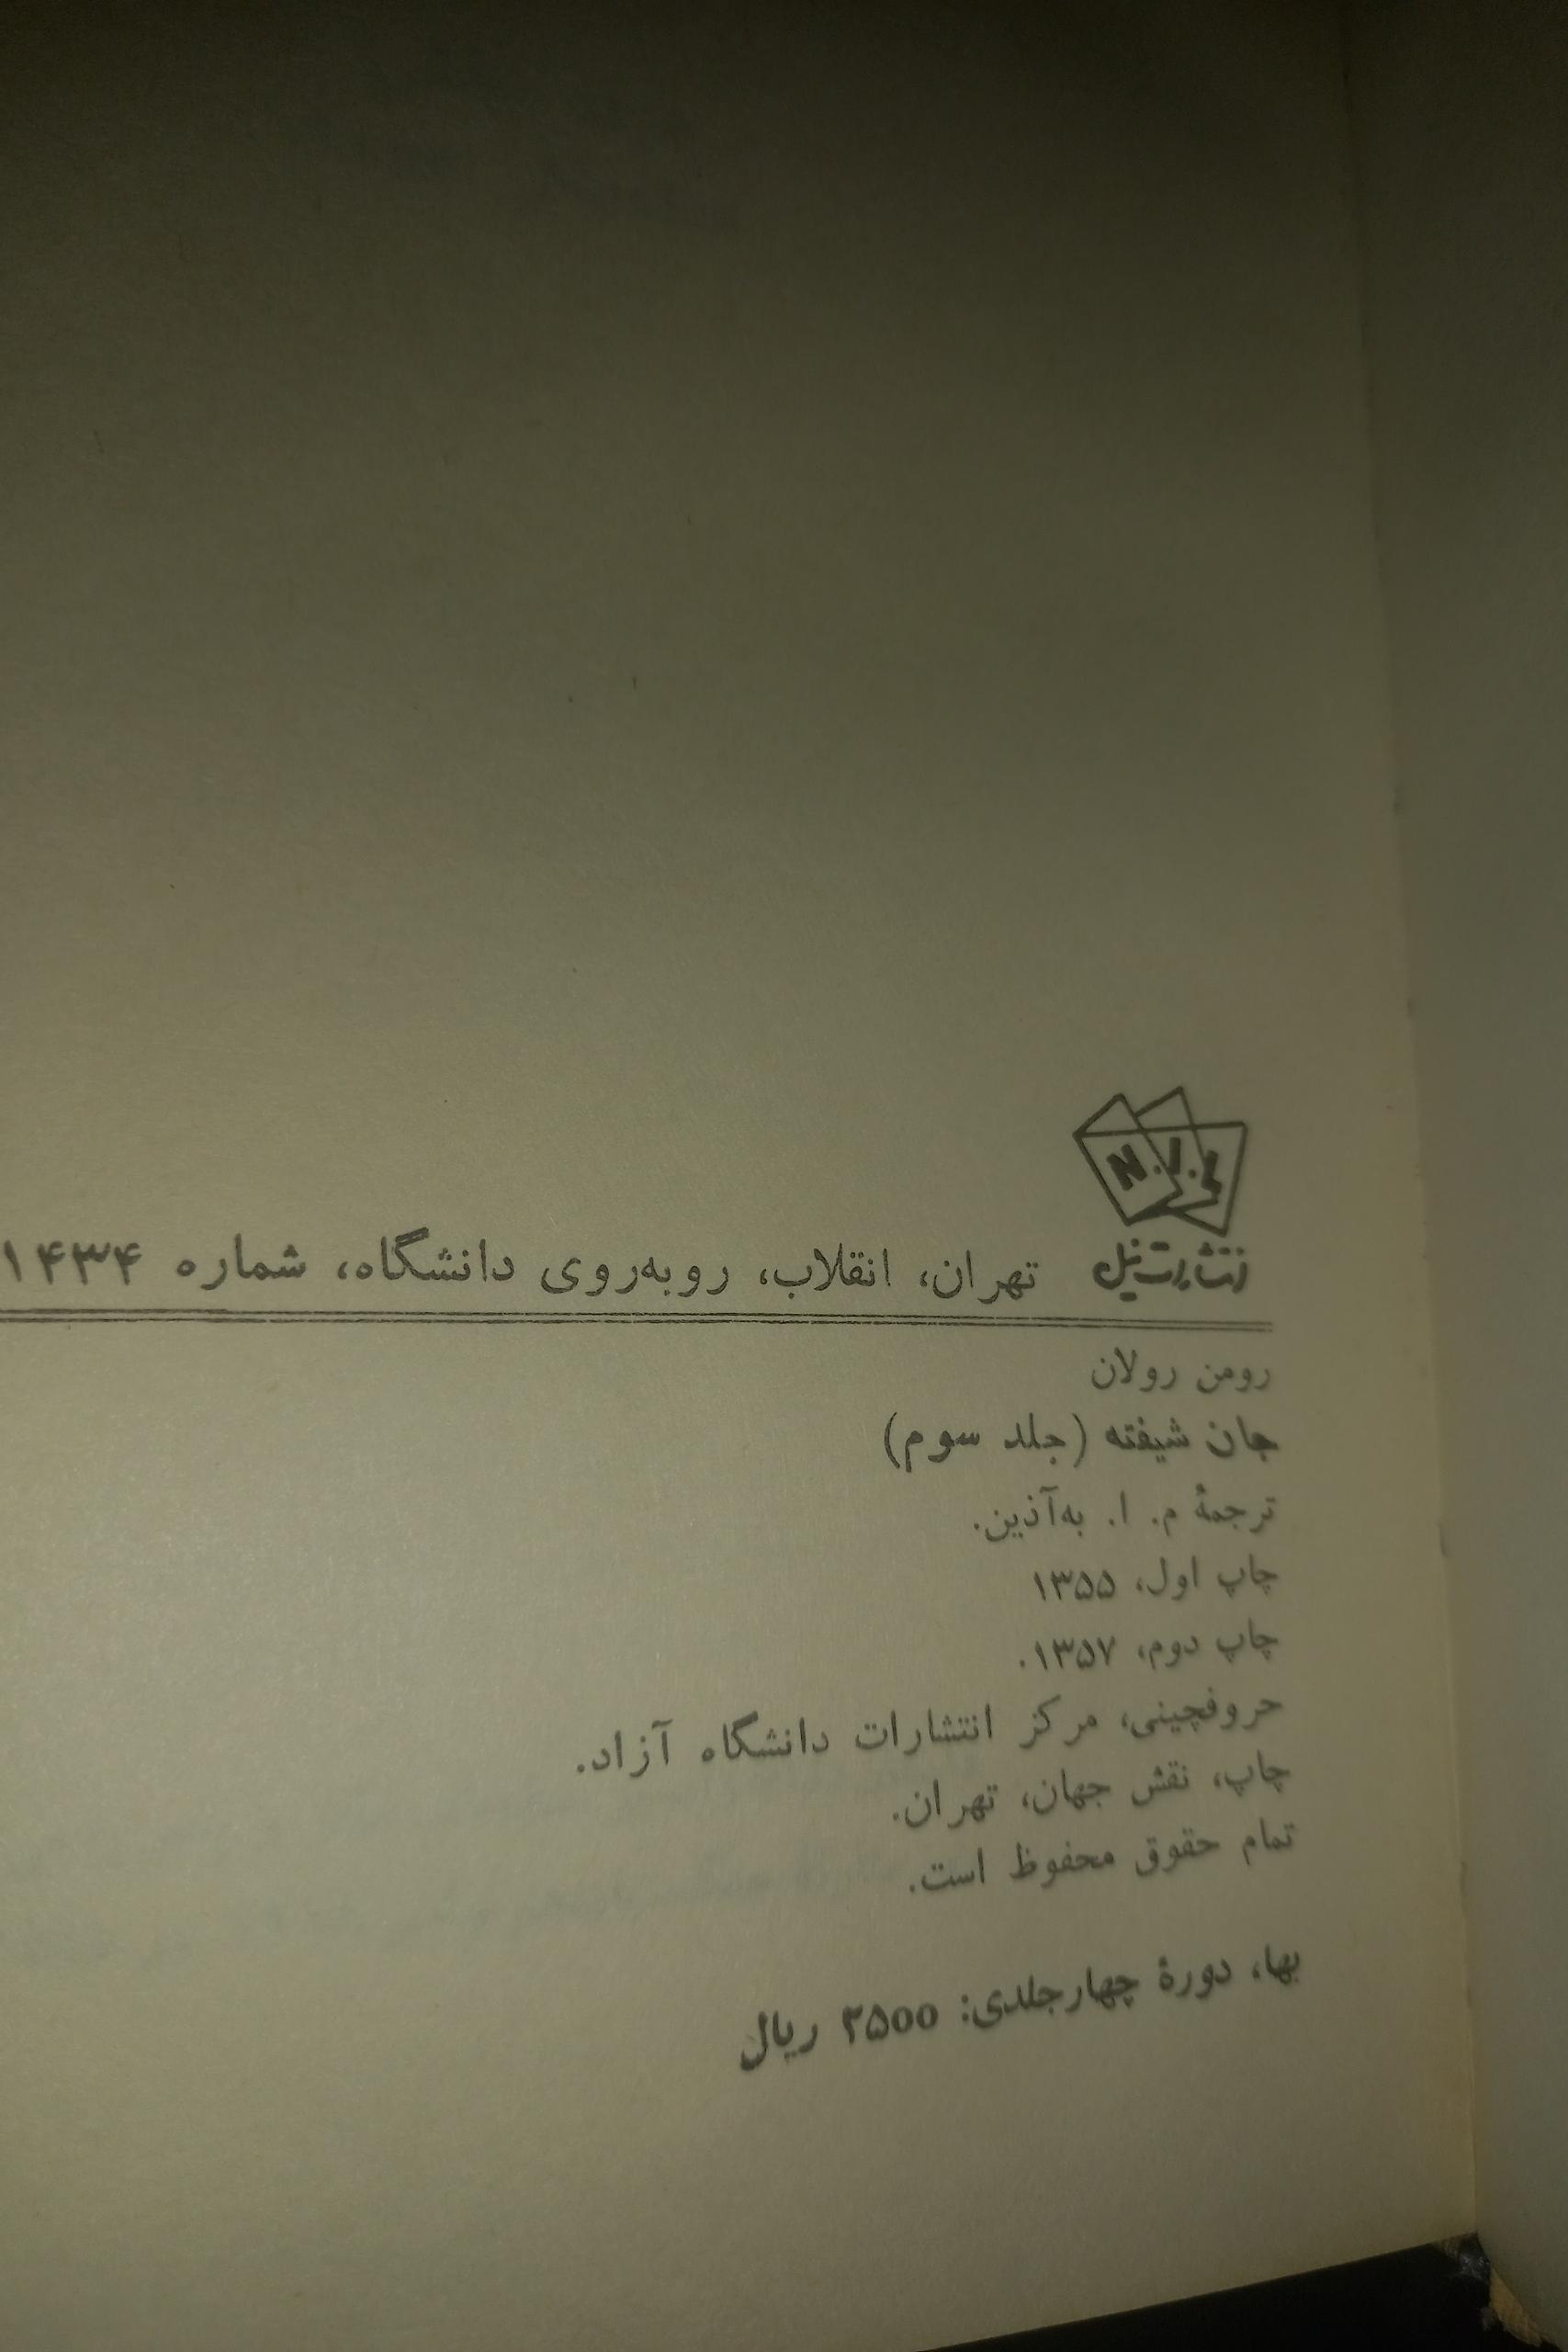 N.I.L
انتشارات نیل
تهران، انقلاب، روبه‌روی دانشگاه، شماره ۱۴۳۴
رومن رولان
جان شیفته (جلد سوم)
ترجمهٔ م. ا. به‌آذین.
چاپ اول، ۱۳۵۵
چاپ دوم، ۱۳۵۷.
حروفچینی، مرکز انتشارات دانشگاه آزاد.
چاپ، نقش جهان، تهران.
تمام حقوق محفوظ است.
بها، دورهٔ چهارجلدی: ۲۵۰۰ ریال